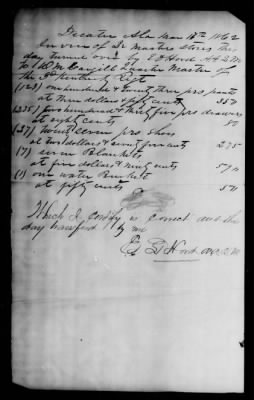 Decatur Ala Mar 18th 1862
Invoice of Qr Masters Stores this
day turned over by E D Hord A A Q M
to Quarter Master of
the 3d Kentucky Regt
(123) one hundred & twenty three prs pants
at three dollars & fifty cents 350
(235) two hundred & thirty five prs drawers
at eighty cents 80
(27) twenty seven prs shoes
at two dollars & seventy five cts 275
(7) seven Blankets
at five dollars & ninety cents 590
(1) one water Bucket
at fifty cents 50
Which I certify is correct and this
day transferred by me
E D Hord AAQM